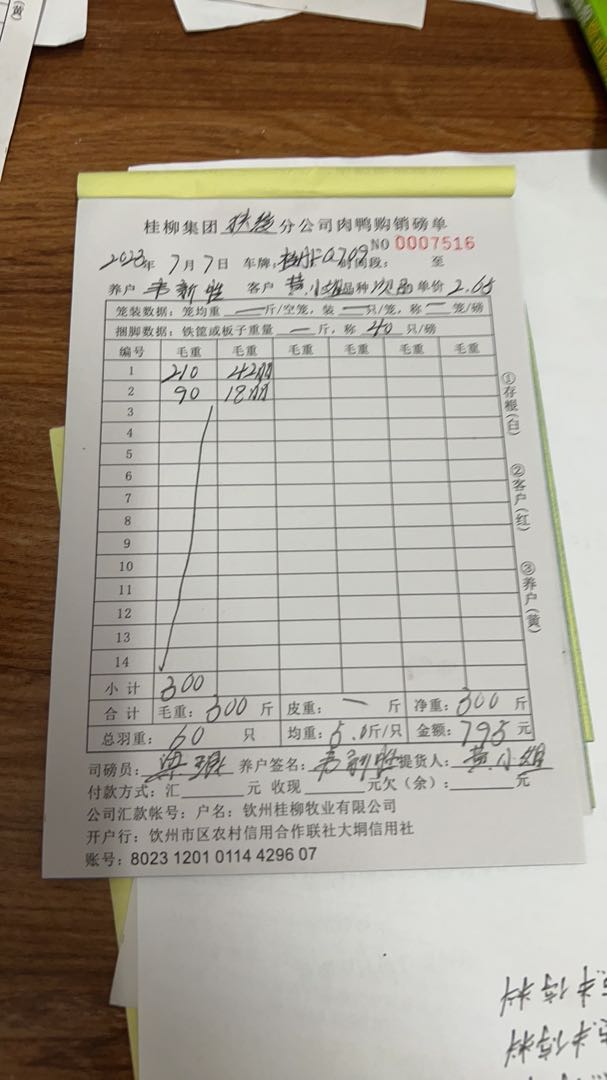 桂柳集团扶绥分公司肉鸭购销磅单
NO 0007516
2023年 7月7日 车牌: 时间段: 至
养户 韦新胜 客户 黄小姐 品种 次品 单价 2.65
笼装数据: 笼均重 一 斤/空笼, 装 一 只/笼, 称 一 笼/磅
捆脚数据: 铁筐或板子重量 一 斤, 称 40 只/磅
编号 毛重 毛重 毛重 毛重 毛重 毛重
1 210 42只
2 90 18只
3
4
5
6
7
8
9
10
11
12
13
14
小计 300
合计 毛重: 300 斤 皮重: 一 斤 净重: 300 斤
总羽重: 60 只 均重: 5.0斤/只 金额: 795 元
司磅员: 养户签名: 韦新胜 提货人: 黄小姐
付款方式: 汇 元 收现 元欠(余): 元
公司汇款帐号: 户名: 钦州桂柳牧业有限公司
开户行: 钦州市区农村信用合作联社大垌信用社
账号: 8023 1201 0114 4296 07
①存根(白)
②客户(红)
③养户(黄)
(黄)